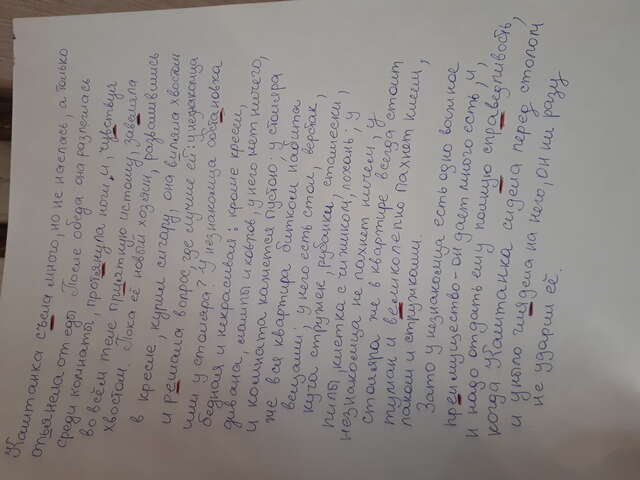 Каштанка съела много, но не наелась, а только
опьянела от еды После обеда она разлеглась
среди комнаты, протянула ноги и, чувствуя
во всём теле приятную истому, завеляла
хвостом. Пока её новый хозяин, развалившись
в кресле, курил сигару, она виляла хвостом
и решала вопрос, где лучше ей: у незнакомца
или у столяра? У незнакомца обстановка
бедная и некрасивая: кроме кресел,
дивана, лампы и ковров, у него нет ничего,
и комната кажется пустою; у столяра
же вся квартира битком набита
вещами; у него есть стол, верстак,
куча стружек, рубанки, стамески,
пилы, клетка с чижиком, лохань; у
незнакомца не пахнет ничем, у
столяра же в квартире всегда стоит
туман и великолепно пахнет клеем,
лаком и стружками.
Зато у незнакомца есть одно важное
преимущество - он дает много есть, и,
и надо отдать ему полную справедливость,
когда Каштанка сидела перед столом
и уныло глядела на него, он ни разу
не ударил её.